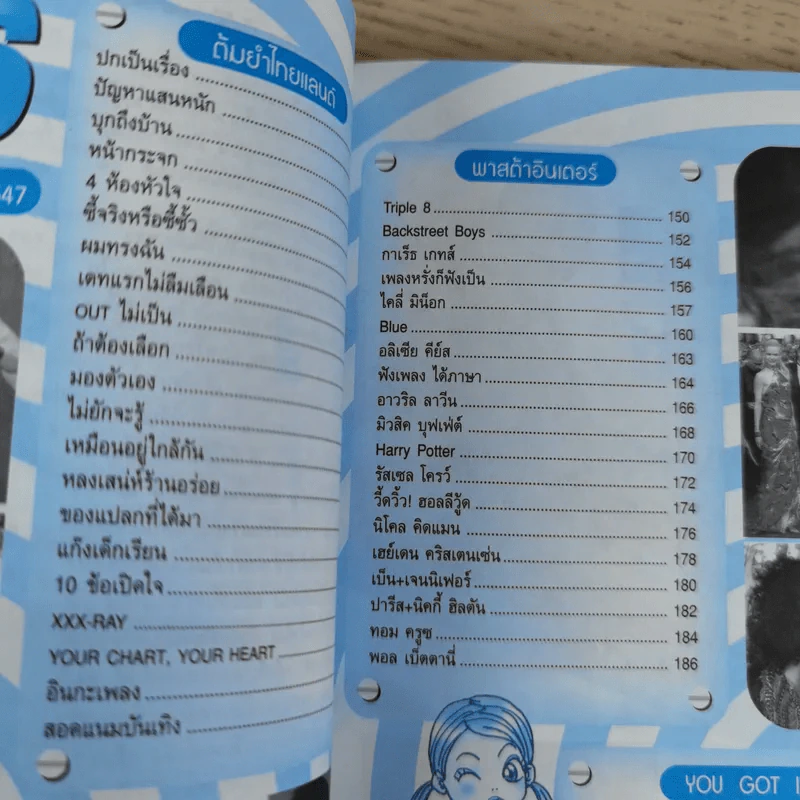 S
547
ต้มยำไทยแลนด์
ปกเป็นเรื่อง
ปัญหาแสนหนัก
บุกถึงบ้าน
หน้ากระจก
4 ห้องหัวใจ
ซี้จริงหรือซี้ซั้ว
ผมทรงฉัน
เดทแรกไม่ลืมเลือน
OUT ไม่เป็น
ถ้าต้องเลือก
มองตัวเอง
ไม่ยักจะรู้
เหมือนอยู่ใกล้กัน
หลงเสน่ห์ร้านอร่อย
ของแปลกที่ได้มา
แก๊งเด็กเรียน
10 ข้อเปิดใจ
XXX-RAY
YOUR CHART, YOUR HEART
อินกะเพลง
สอดแนมบันเทิง
พาสต้าอินเตอร์
Triple 8 150
Backstreet Boys 152
กาเร็ธ เกทส์ 154
เพลงหรั่งก็ฟังเป็น 156
ไคลี่ มิน็อก 157
Blue 160
อลิเซีย คีย์ส 163
ฟังเพลง ได้ภาษา 164
อาวริล ลาวีน 166
มิวสิค บุฟเฟ่ต์ 168
Harry Potter 170
รัสเซล โครว์ 172
วี้ดวิ้ว! ฮอลลีวู้ด 174
นิโคล คิดแมน 176
เฮย์เดน คริสเตนเซ่น 178
เบ็น+เจนนิเฟอร์ 180
ปารีส+นิคกี้ ฮิลตัน 182
ทอม ครูซ 184
พอล เบ็ตตานี่ 186
YOU GOT